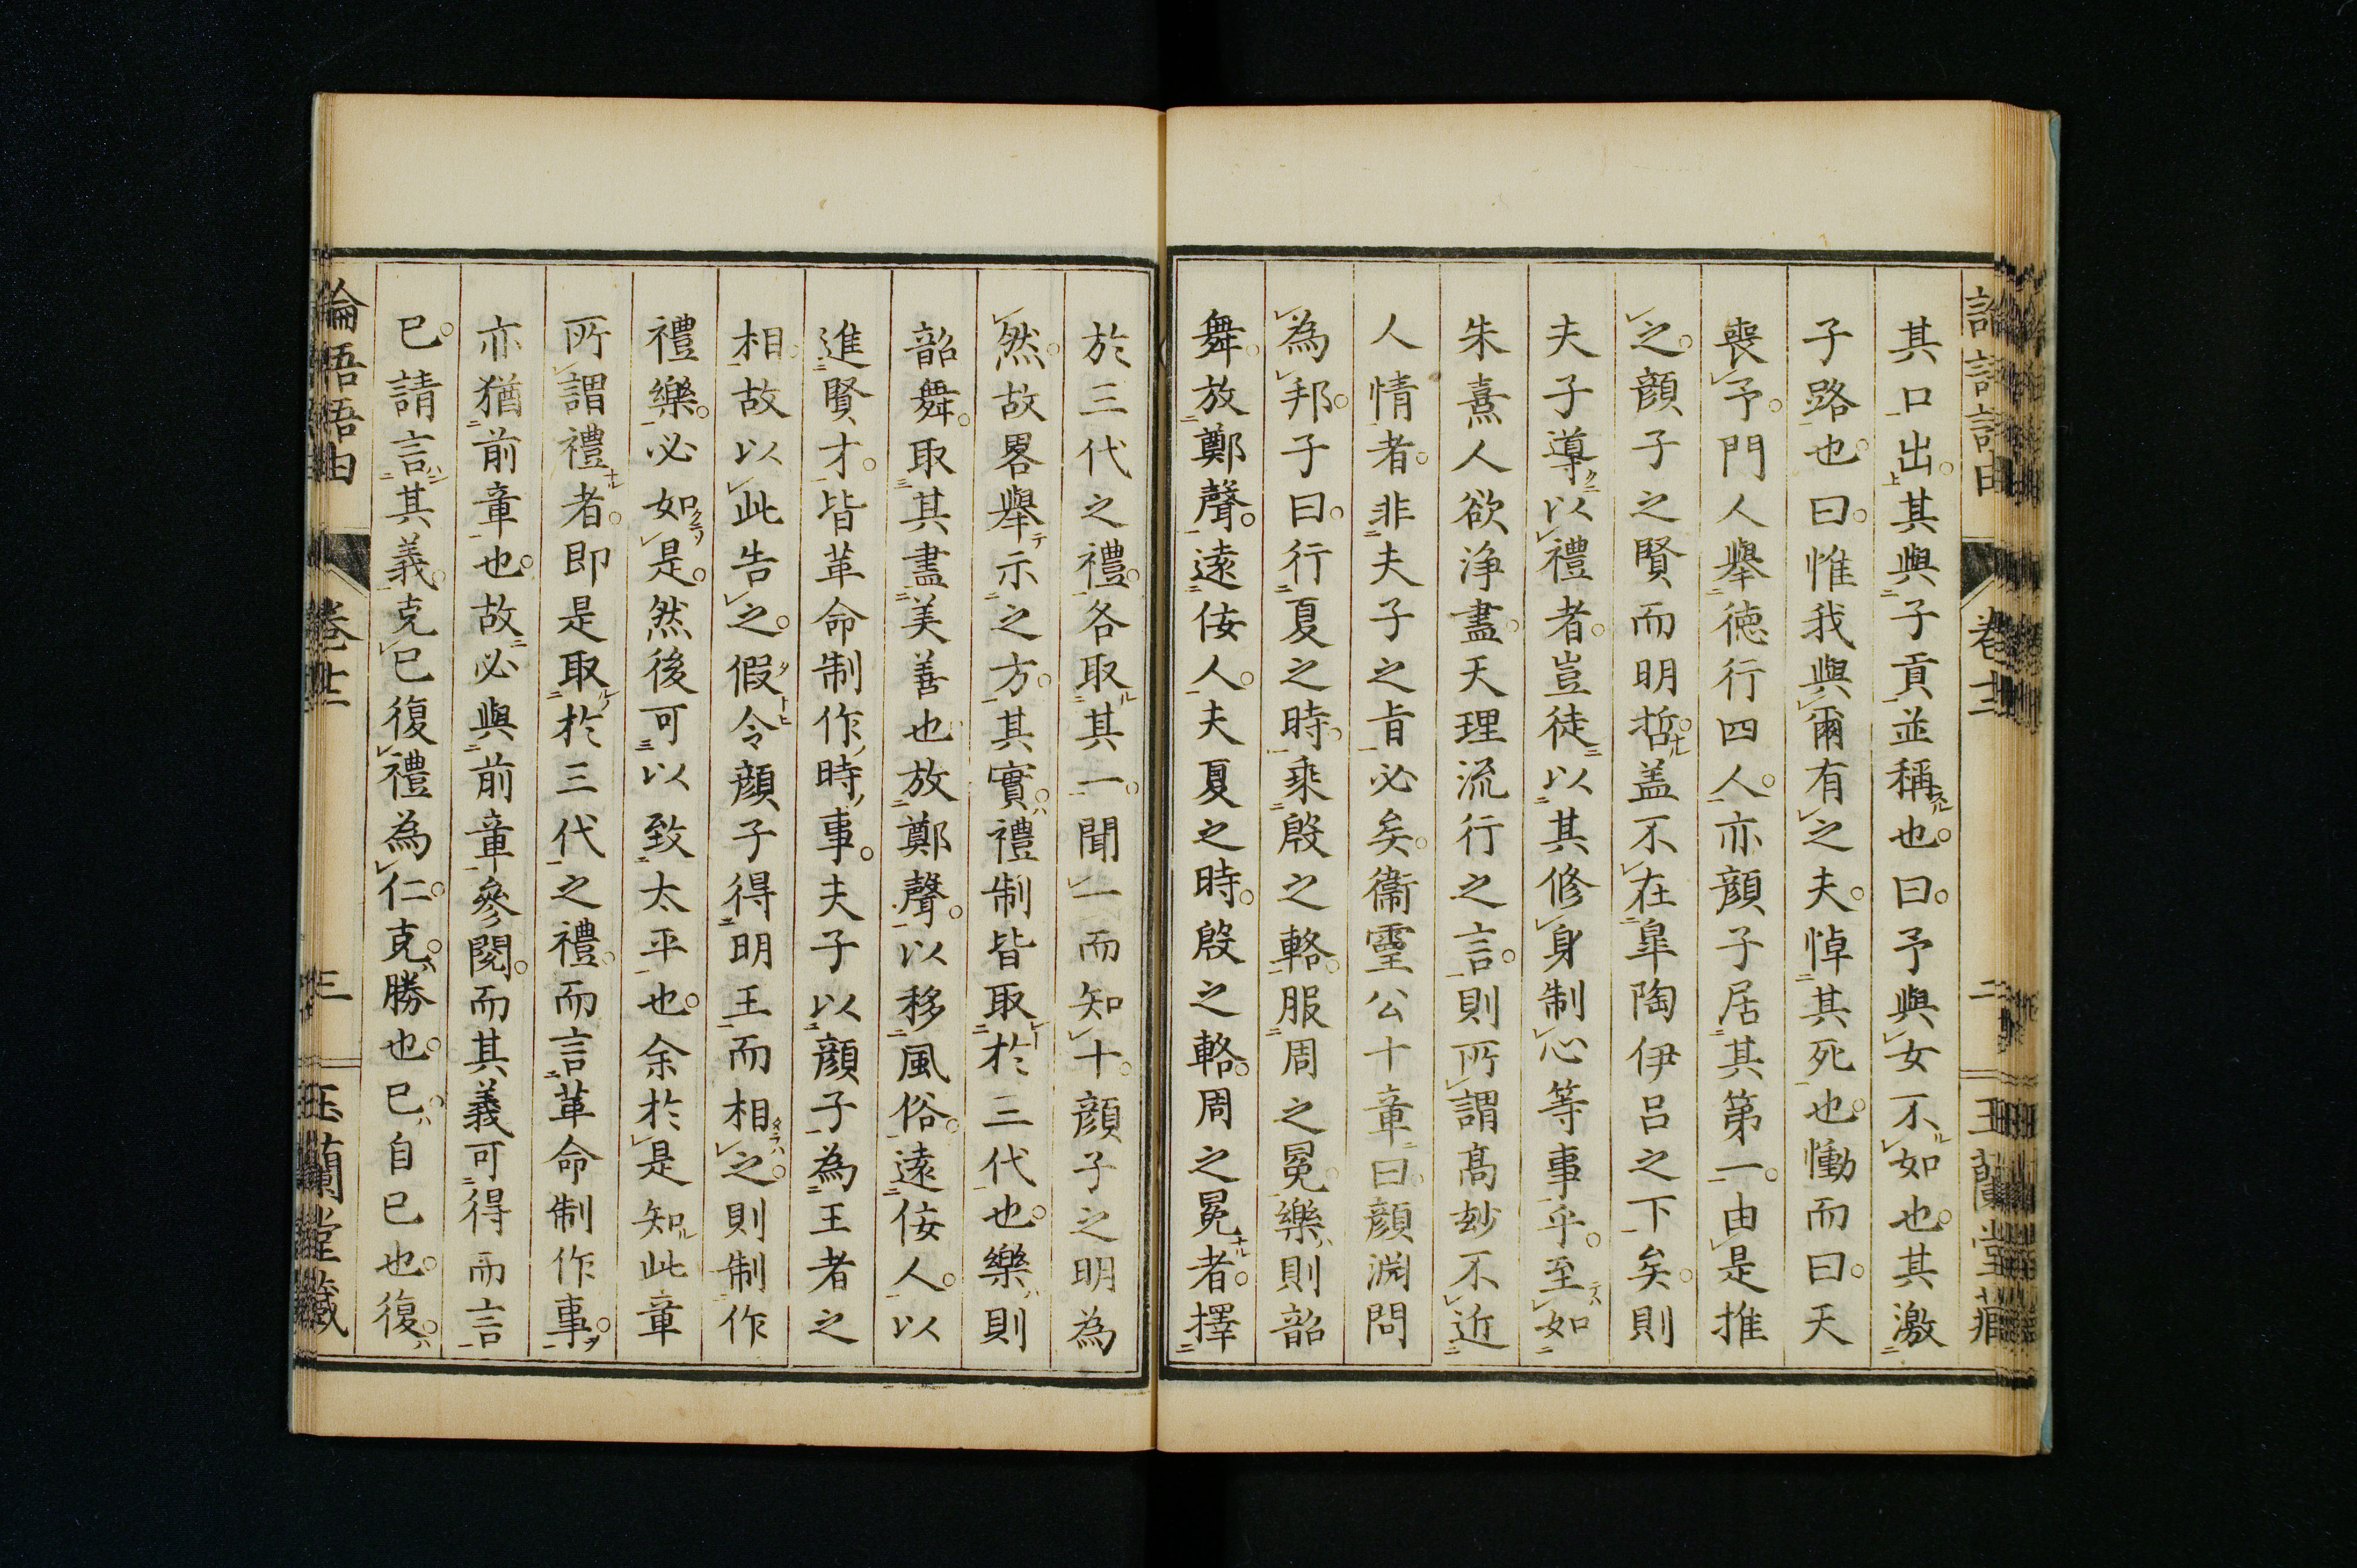 其口出其與子貢並稱也曰予與女不如也其激
子路也曰惟我與爾有之夫悼其死也慟而曰天
喪予門人擧徳行四人亦顔子居其第一由是推
之顔子之賢而明哲盖不在皐陶伊呂之下矣則
夫子導以禮者豈徒以其修身制心等事乎至如
朱熹人欲浄盡天理流行之言則所謂髙玅不近
人情者非夫子之旨必矣衞靈公十章曰顔淵問
為邦子曰行夏之時乘殷之輅服周之冕樂則韶
舞放鄭聲遠佞人夫夏之時殷之輅周之冕者擇
於三代之禮各取其一聞一而知十顔子之明為
然故畧擧示之方其實禮制皆取於三代也樂則
韶舞取其盡美善也放鄭聲以移風俗遠佞人以
進賢才皆革命制作時事夫子以顔子為王者之
相故以此告之假令顔子得明王而相之則制作
禮樂必如是然後可以致太平也余於是知此章
所謂禮者即是取於三代之禮而言革命制作事
亦猶前章也故必與前章參閲而其義可得而言
已請言其義克已復禮為仁克勝也已自已也復
論語語由 卷十二 三 玉蘭堂藏